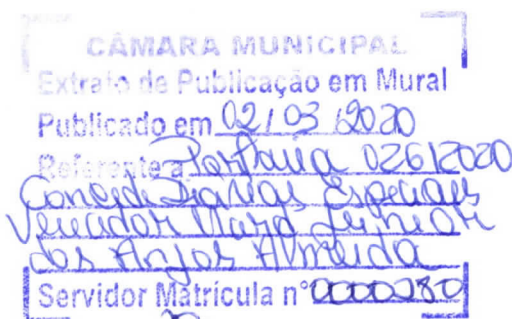 CÂMARA MUNICIPAL
Extrato de Publicação em Mural
Publicado em 02/03/2020
Referente a Portaria 026/2020
Concede Diarias Especiais
Vereador Mard Junior
dos Anjos Almeida
Servidor Matrícula nº 0000380